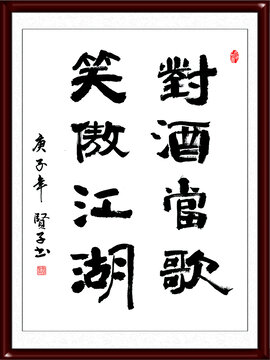 對酒當歌
笑傲江湖
庚子年 賢子書